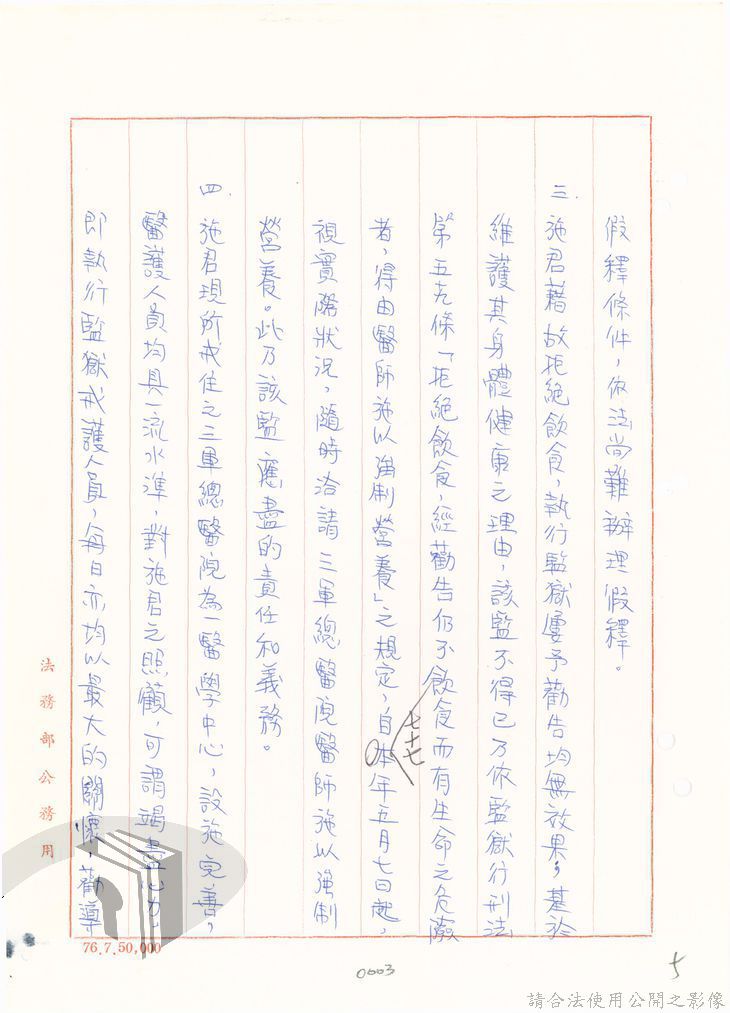 假釋條件，依法尚難辦理假釋。
三、施君藉故拒絕飲食，執行監獄屢予勸告均無效果，基於
維護其身體健康之理由，該監不得已乃依監獄行刑法
第五九條「拒絕飲食，經勸告仍不飲食而有生命之危險
者，得由醫師施以強制營養」之規定，自本年五月七日起，
七十七
視實際狀況，隨時洽請三軍總醫院醫師施以強制
營養。此乃該監應盡的責任和義務。
四、施君現所戒住之三軍總醫院為一醫學中心，設施完善，
醫護人員均具一流水準，對施君之照顧，可謂竭盡心力，
即執行監獄戒護人員，每日亦均以最大的關懷，勸導
法務部公務用
76.7.50,000
0003
5
請合法使用公開之影像